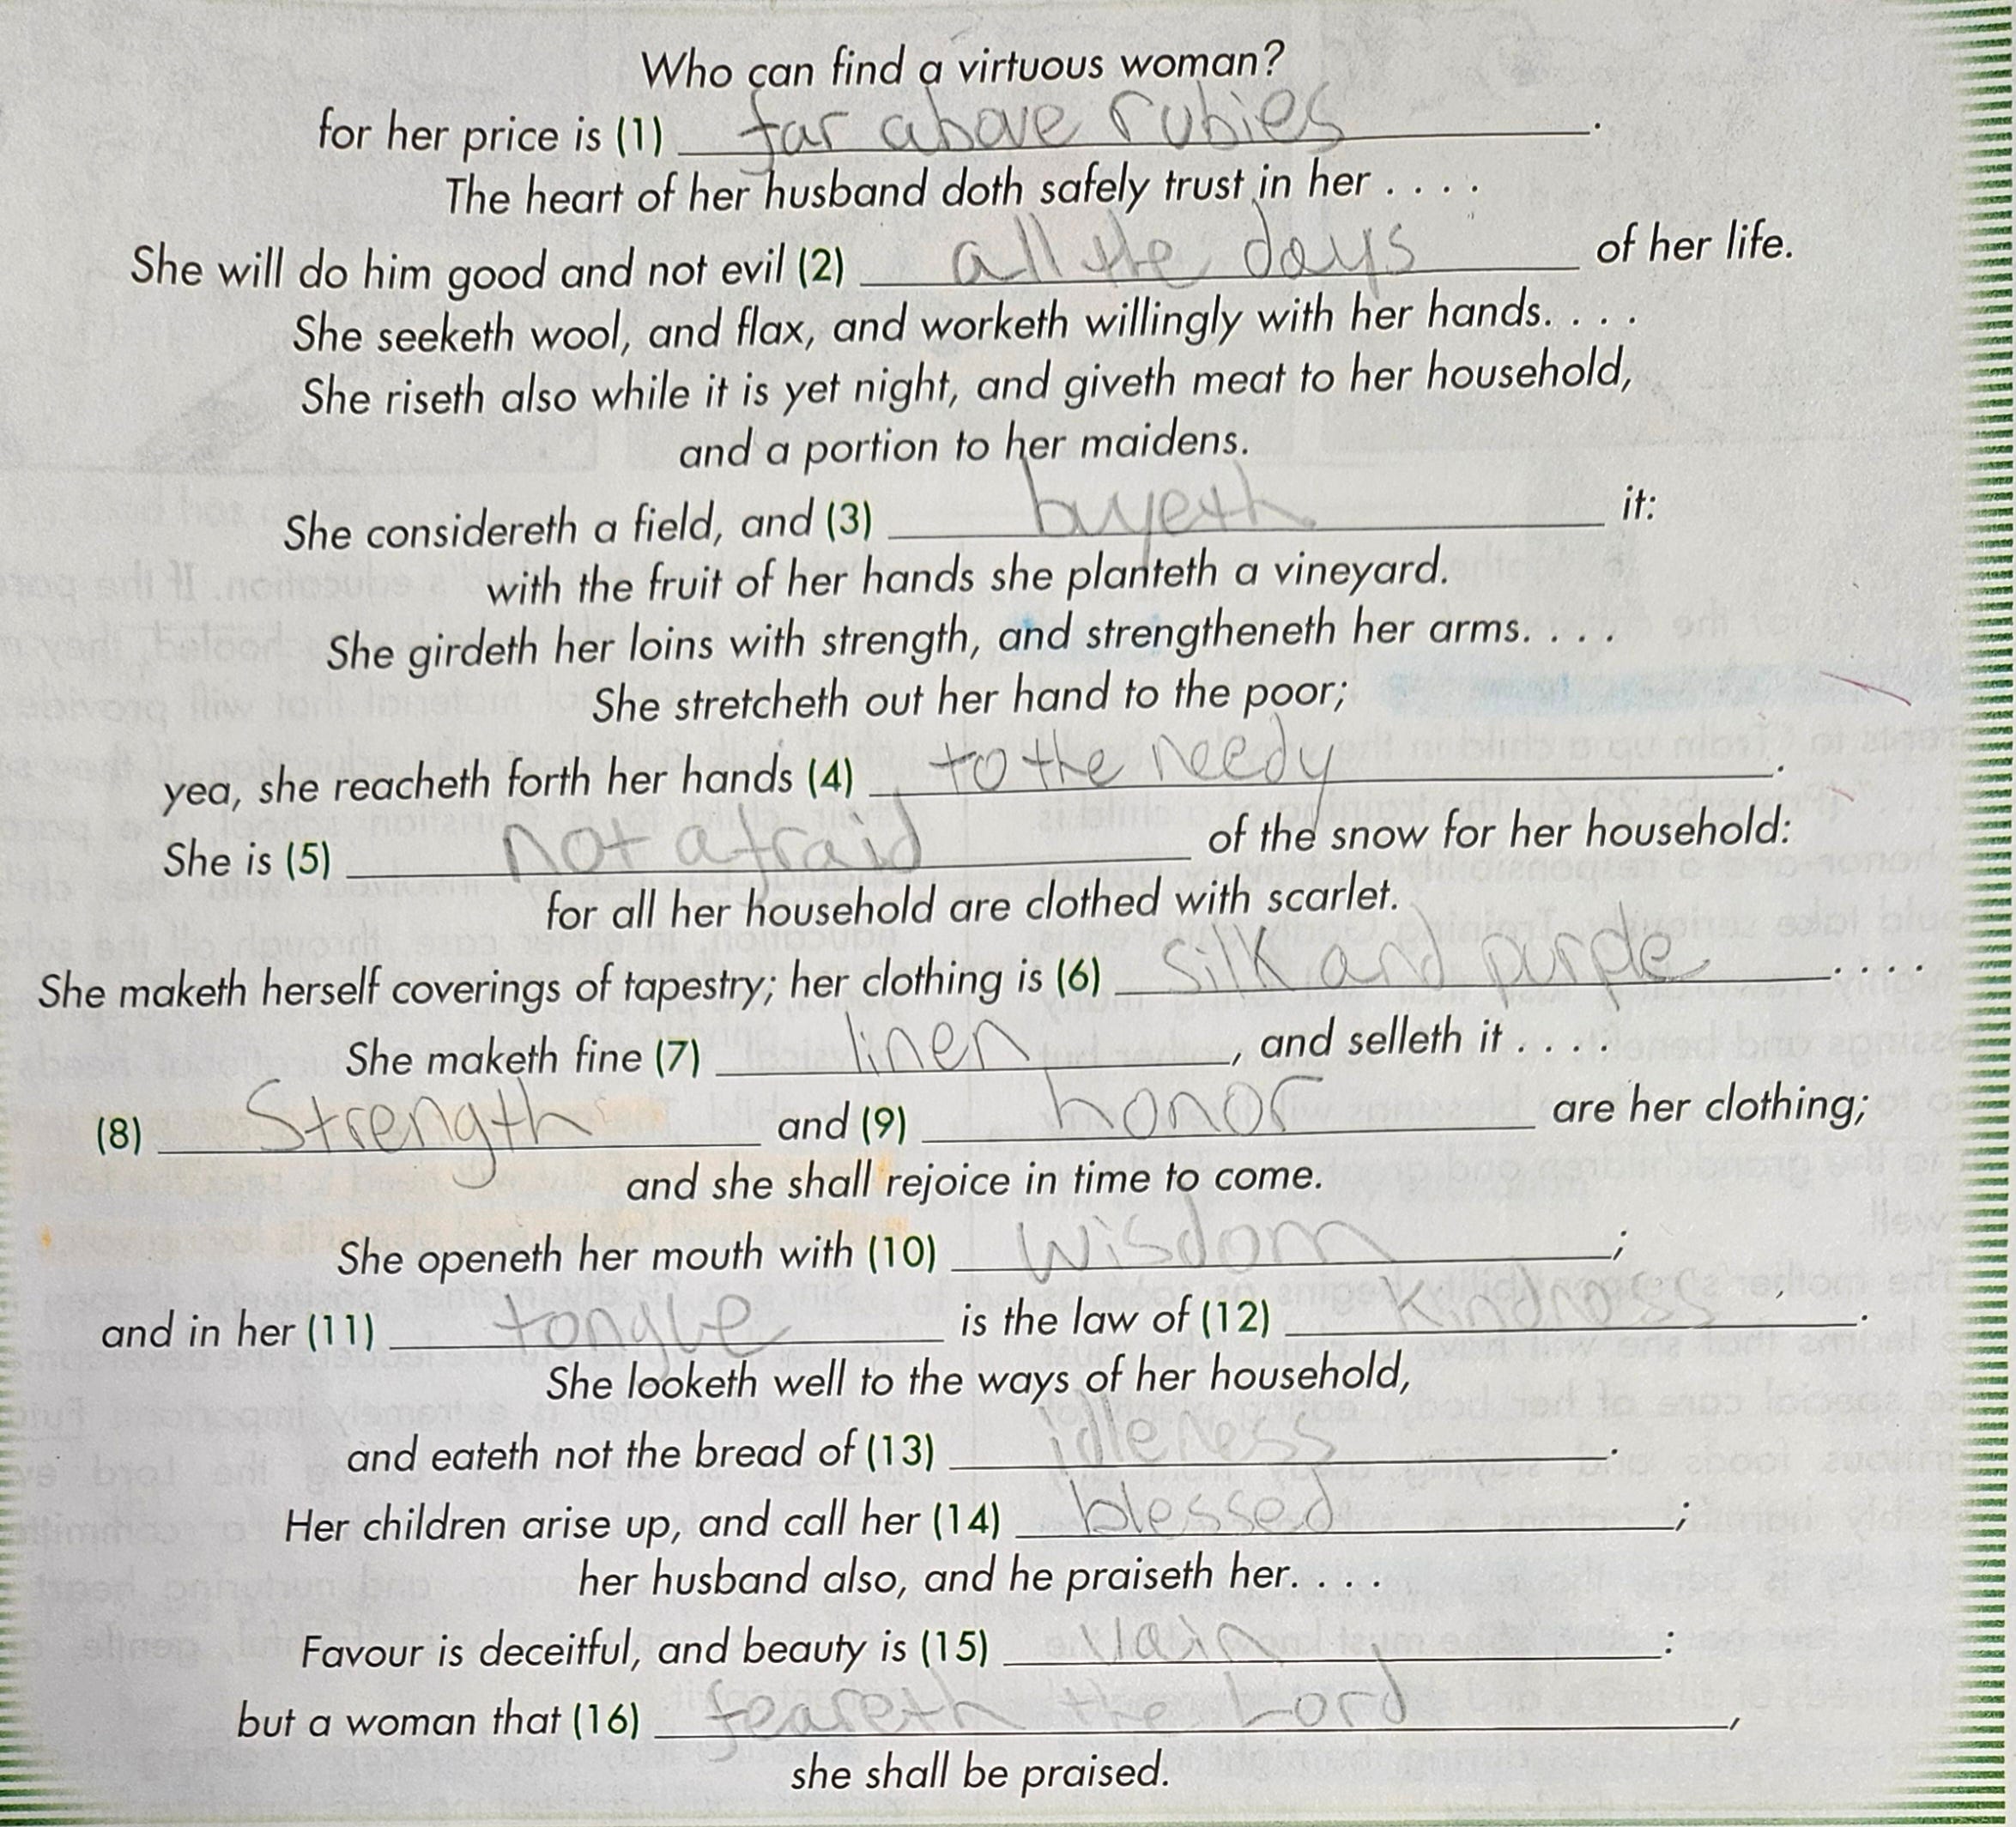 Who can find a virtuous woman?
for her price is (1) far above rubies.
The heart of her husband doth safely trust in her . . . .
She will do him good and not evil (2) all the days of her life.
She seeketh wool, and flax, and worketh willingly with her hands. . . .
She riseth also while it is yet night, and giveth meat to her household,
and a portion to her maidens.
She considereth a field, and (3) buyeth it:
with the fruit of her hands she planteth a vineyard.
She girdeth her loins with strength, and strengtheneth her arms. . . .
She stretcheth out her hand to the poor;
yea, she reacheth forth her hands (4) to the needy.
She is (5) not afraid of the snow for her household:
for all her household are clothed with scarlet.
She maketh herself coverings of tapestry; her clothing is (6) silk and purple. . . .
She maketh fine (7) linen, and selleth it . . . .
(8) Strength and (9) honor are her clothing;
and she shall rejoice in time to come.
She openeth her mouth with (10) wisdom;
and in her (11) tongue is the law of (12) kindness.
She looketh well to the ways of her household,
and eateth not the bread of (13) idleness.
Her children arise up, and call her (14) blessed;
her husband also, and he praiseth her. . . .
Favour is deceitful, and beauty is (15) vain:
but a woman that (16) feareth the Lord,
she shall be praised.